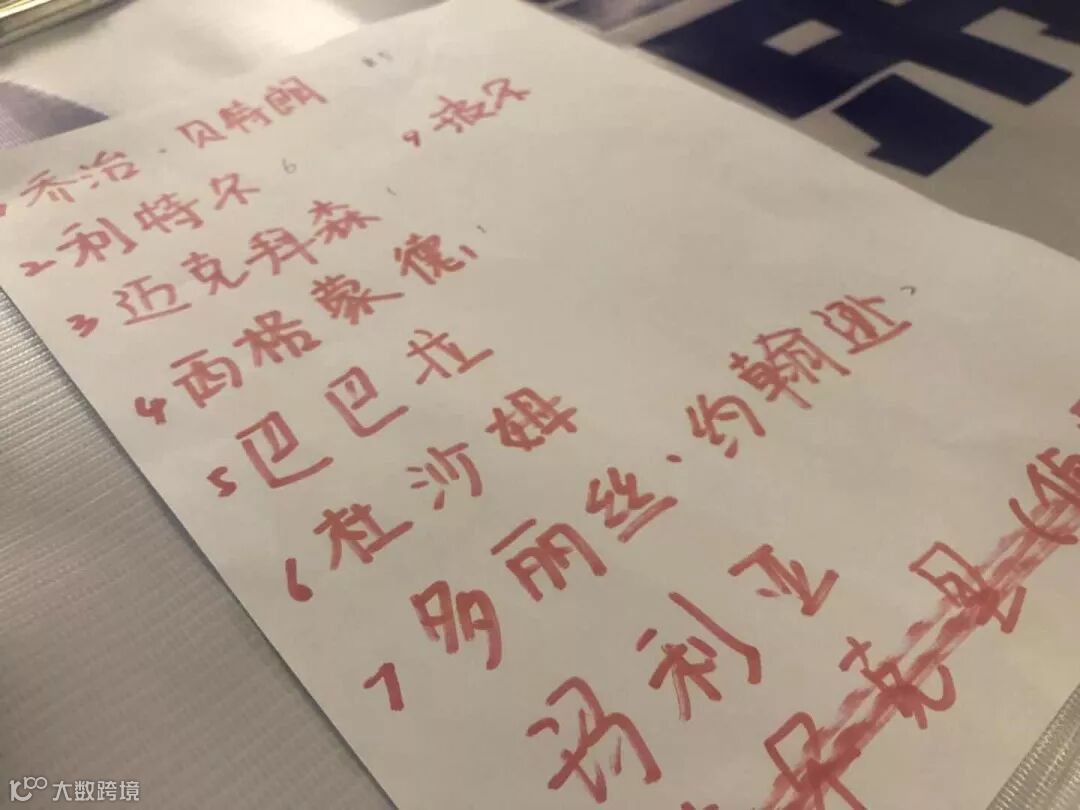 乔治·贝特朗
2 利特尔
3 迈克拜森
4 西格蒙德
5 巴巴拉
6 杜沙姆
7 多丽丝·约翰逊
玛利亚
9 披尔
大数跨境